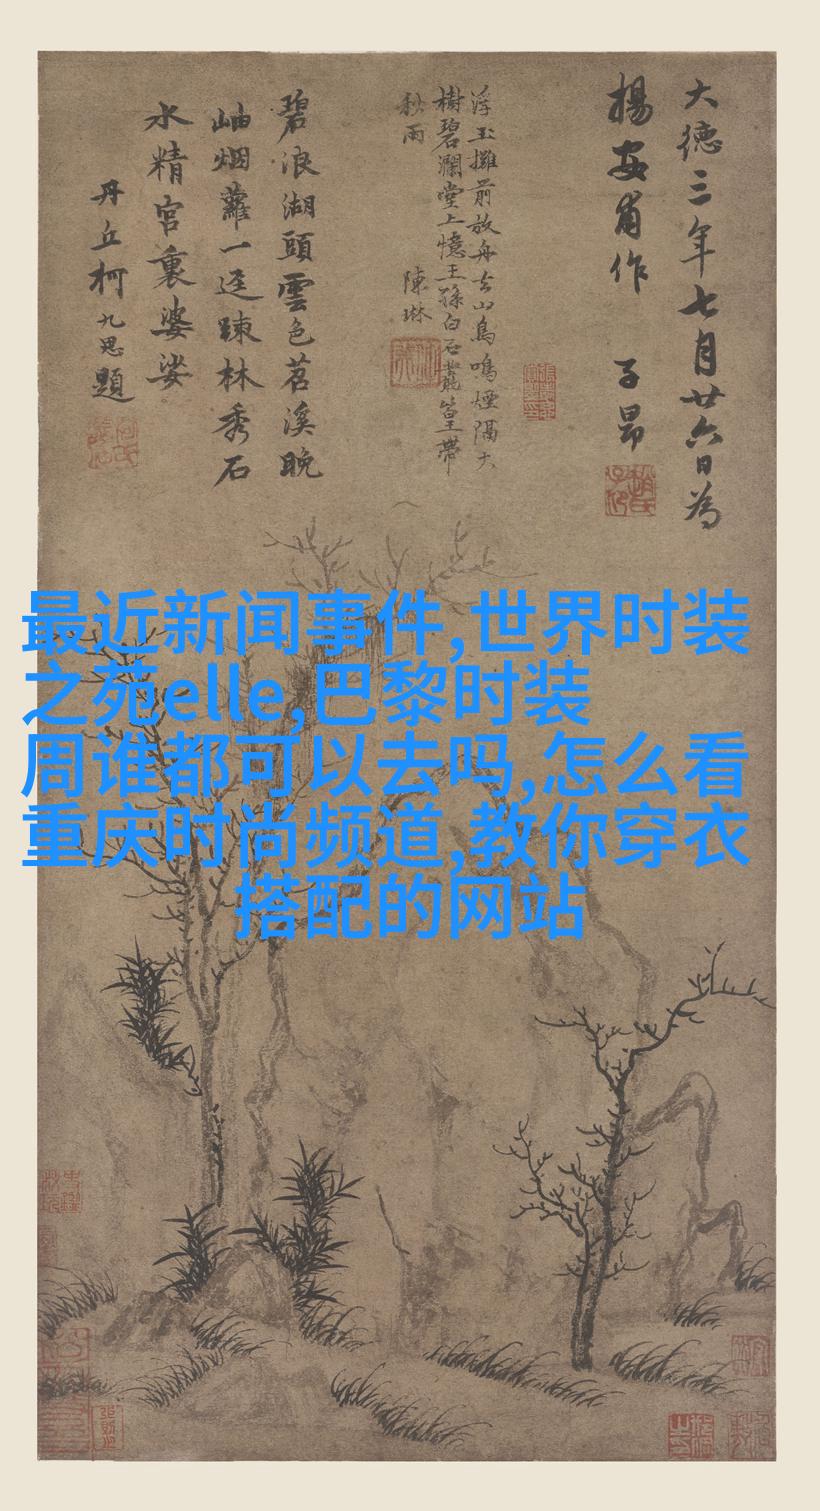 大德三年七月廿六日為
楊安甫作 子昂
浮玉攤前放舟去山鳥鳴煙隔大
樹碧瀾堂上憶王孫白石叢篁帶
秋雨 陳琳
碧浪湖頭雲色苕溪晚
岫烟蘿一逕踈林秀石
水精宮裏婆娑
丹丘柯九思題
最近新闻事件,世界时装
之苑elle,巴黎时装
周谁都可以去吗,怎么看
重庆时尚频道,教你穿衣
搭配的网站